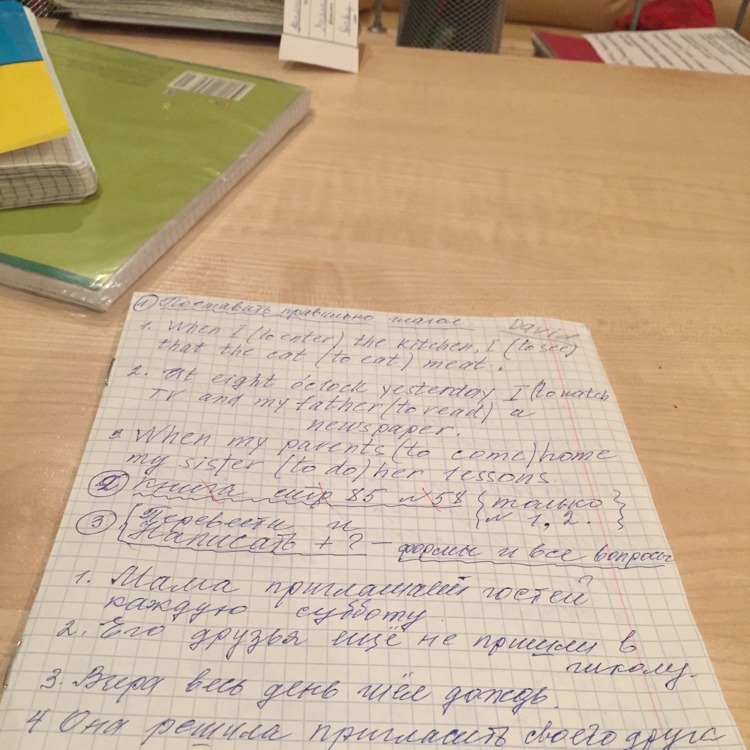 ① Поставить правильно глагол. David
1. When I (to enter) the kitchen, I (to see)
that the cat (to eat) meat.
2. At eight o'clock yesterday I (to watch
TV and my father (to read) a
newspaper.
3. When my parents (to come) home
my sister (to do) her lessons.
② Книга стр 85 № 58 {только
№ 1, 2.}
③ Перевести и
написать + ? – формы и все вопросы
1. Мама приглашает гостей
каждую субботу.
2. Его друзья ещё не пришли в
школу.
3. Вчера весь день шёл дождь.
4 Она решила пригласить своего друга